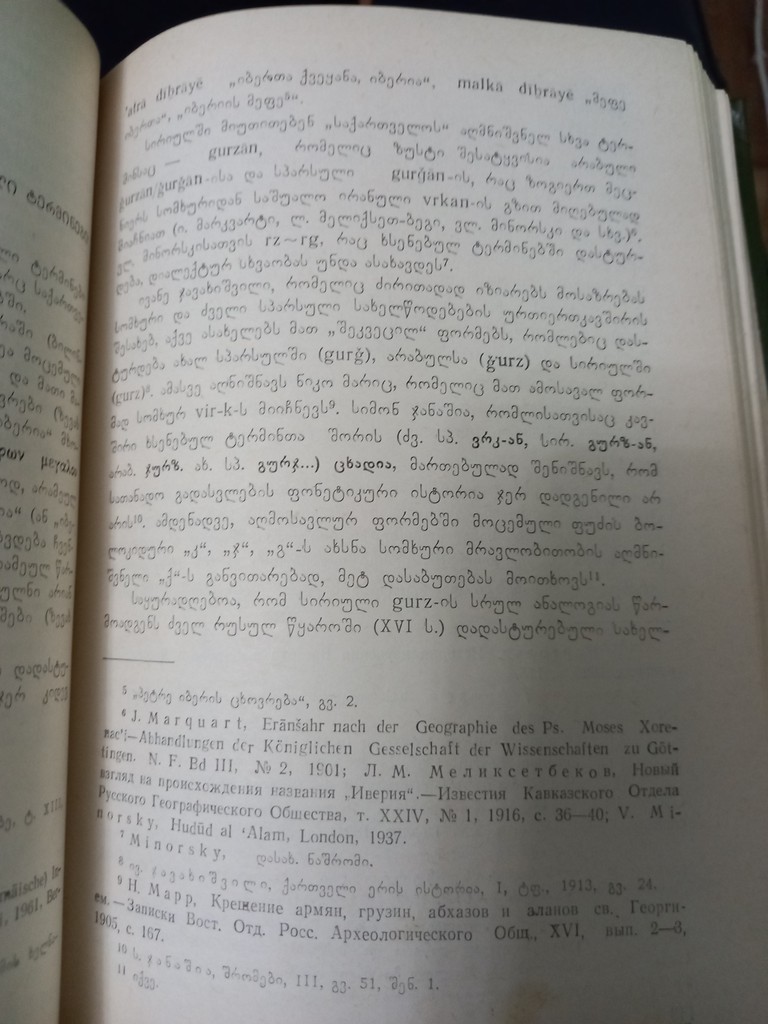 ʼatrā dibrāyē „იბერთა ქვეყანა, იბერია“, malkā dibrāyē „მეფე
იბერთა“, „იბერიის მეფე⁵“.
სირიულში მიუთითებენ „საქართველოს“ აღმნიშვნელ სხვა ტერ-
მინსაც — gurzān, რომელიც ზუსტი შესატყვისია არაბული
gurzān/ǧurǧān-ისა და სპარსული gurǧān-ის, რაც ზოგიერთ მეც-
ნიერს სომხურიდან საშუალო ირანული vrkan-ის გზით მიღებულად
მიაჩნიათ (ი. მარკვარტი, ლ. მელიქსეთ-ბეგი, ვლ. მინორსკი და სხვ.)⁶.
ვლ. მინორსკისათვის rz~rg, რაც ხსენებულ ტერმინებში დასტურ-
დება, დიალექტურ სხვაობას უნდა ასახავდეს⁷.
ივანე ჯავახიშვილი, რომელიც ძირითადად იზიარებს მოსაზრებას
სომხური და ძველი სპარსული სახელწოდებების ურთიერთკავშირის
შესახებ, აქვე ასახელებს მათ „შეკვეცილ“ ფორმებს, რომლებიც დას-
ტურდება ახალ სპარსულში (gurǧ), არაბულსა (ǧurz) და სირიულში
(gurz)⁸. ამასვე აღნიშნავს ნიკო მარიც, რომელიც მათ ამოსავალ ფორ-
მად სომხურ vir-k-ს მიიჩნევს⁹. სიმონ ჯანაშია, რომლისათვისაც კავ-
შირი ხსენებულ ტერმინთა შორის (ძვ. სპ. ვრკ-ან, სირ. გურზ-ან,
არაბ. ჯურზ. ახ. სპ. გურჯ...) ცხადია, მართებულად შენიშნავს, რომ
სათანადო გადასვლების ფონეტიკური ისტორია ჯერ დადგენილი არ
არის¹⁰. ამდენადვე, აღმოსავლურ ფორმებში მოცემული ფუძის ბო-
ლოკიდური „კ“, „ჯ“, „გ“-ს ახსნა სომხური მრავლობითობის აღმნი-
შვნელი „ქ“-ს განვითარებად, მეტ დასაბუთებას მოითხოვს¹¹.
საყურადღებოა, რომ სირიული gurz-ის სრულ ანალოგიას წარ-
მოადგენს ძველ რუსულ წყაროში (XVI ს.) დადასტურებული სახელ-
⁵ „პეტრე იბერის ცხოვრება“, გვ. 2.
⁶ J. Marquart, Erānšahr nach der Geographie des Ps. Moses Xore-
nac'i—Abhandlungen der Königlichen Gesselschaft der Wissenschaften zu Göt-
tingen. N. F. Bd III, № 2, 1901; Л. М. Меликсетбеков, Новый
взгляд на происхождения названия „Иверия“.—Известия Кавказского Отдела
Русского Географического Общества, т. XXIV, № 1, 1916, с. 36—40; V. Mi-
norsky, Hudūd al ʻAlam, London, 1937.
⁷ Minorsky, დასახ. ნაშრომი.
⁸ ივ. ჯავახიშვილი, ქართველი ერის ისტორია, I, ტფ., 1913, გვ. 24.
⁹ Н. Марр, Крещение армян, грузин, абхазов и аланов св. Георги-
ем.—Записки Вост. Отд. Росс. Археологического Общ., XVI, вып. 2—3,
1905, с. 167.
¹⁰ ს. ჯანაშია, შრომები, III, გვ. 51, შენ. 1.
¹¹ იქვე.